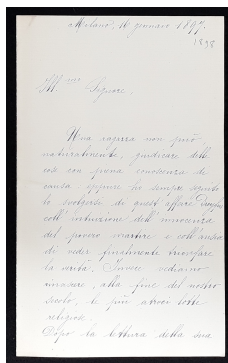 Milano, 16 gennaio 1897.
1898
Ill.mo Signore.
Una ragazza non può,
naturalmente, giudicare delle
cose con piena conoscenza di
causa eppure ho sempre seguito
lo svolgersi di quest'affare Dreyfus
coll'intuizione dell'innocenza
del povero martire e coll'ansia
di veder finalmente trionfare
la verità. Invece vediamo
rinascere, alla fine del nostro
secolo, le più atroci lotte
religiose.
Dopo la lettura della sua